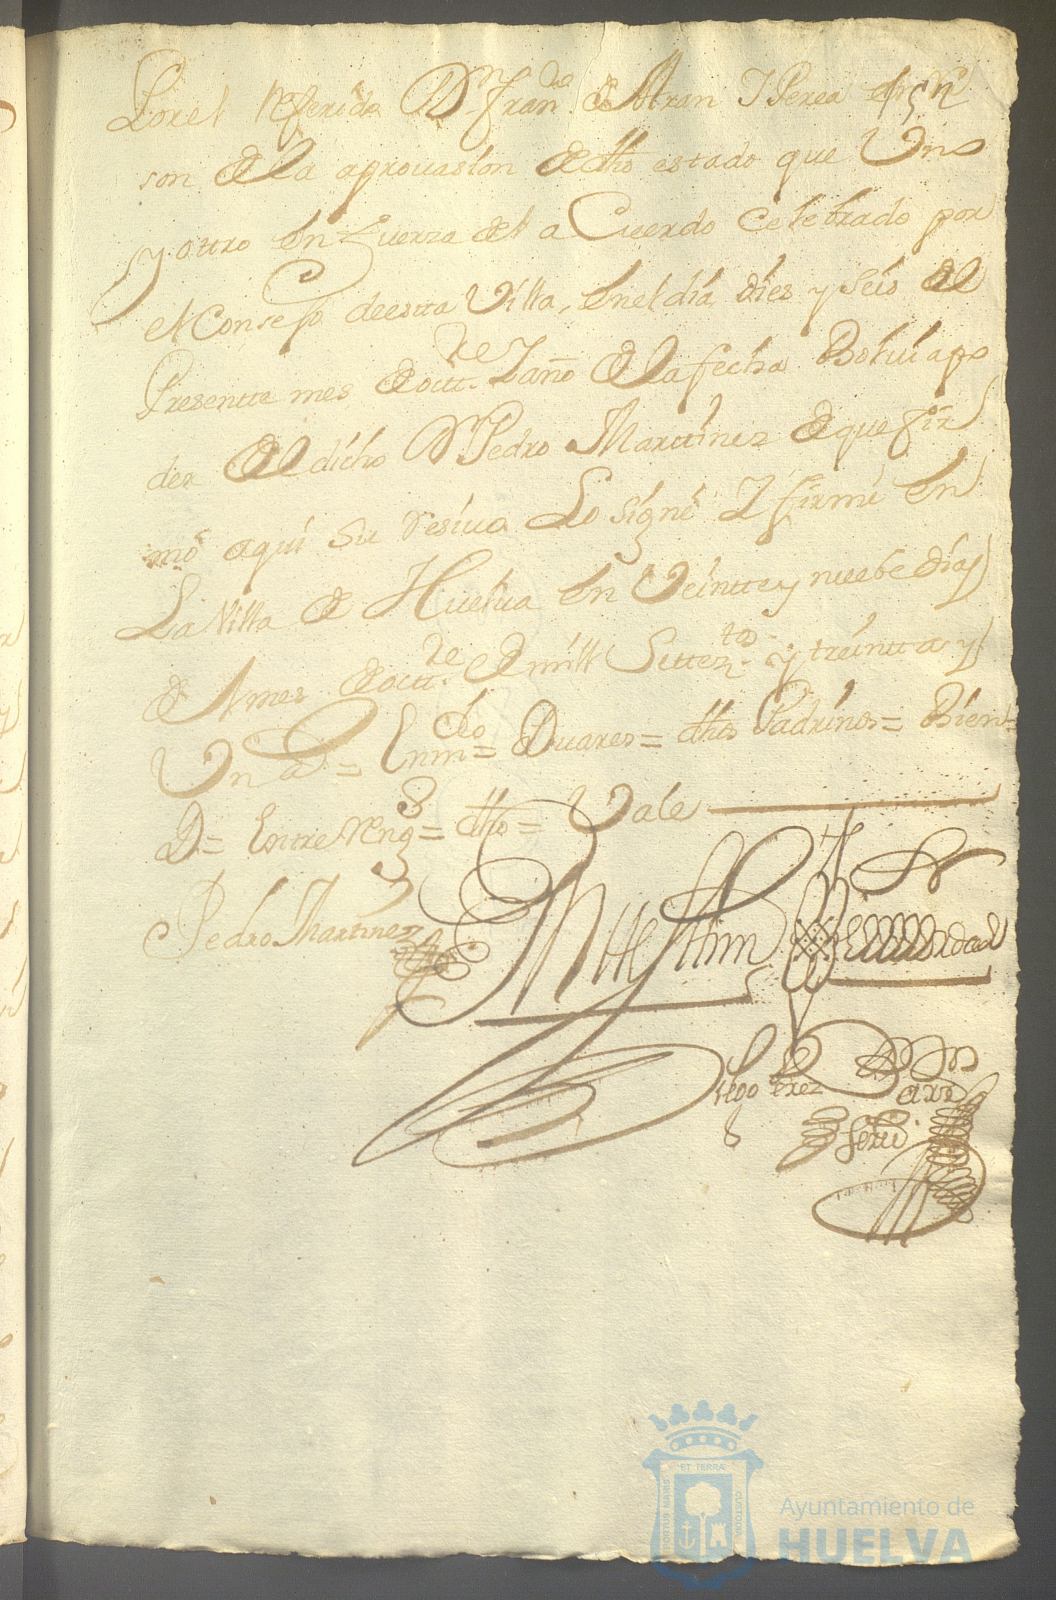 Por el Referido Dn Franco de Beltran Y Perea en Ra
son de la aprouasion de dho estado que Uno
y otro en fuerza del a Cuerdo Celebrado por
el Consejo de estta Uilla, en el dia dies y seis del
Presentte mes de octt.re Y año de la fecha Bolui a po
der del dicho Dn Pedro Marttinez de que fir
mó aqui su resiuo Lo signé Y firmé en
La Villa de Huelua en Ueintte y nuebe dias
del mes de octt.re de mill Settez.tos y treintta y
Un a.s = Enm.do = Duares = dhos Padrinos = Bien =
D = Entre Reng.s = dho = Uale
Pedro Marttinez
En testim de Verdad
Diego Perez
ssno
PORTUS MARIS ET TERRAE CUSTODIA
Ayuntamiento de
HUELVA